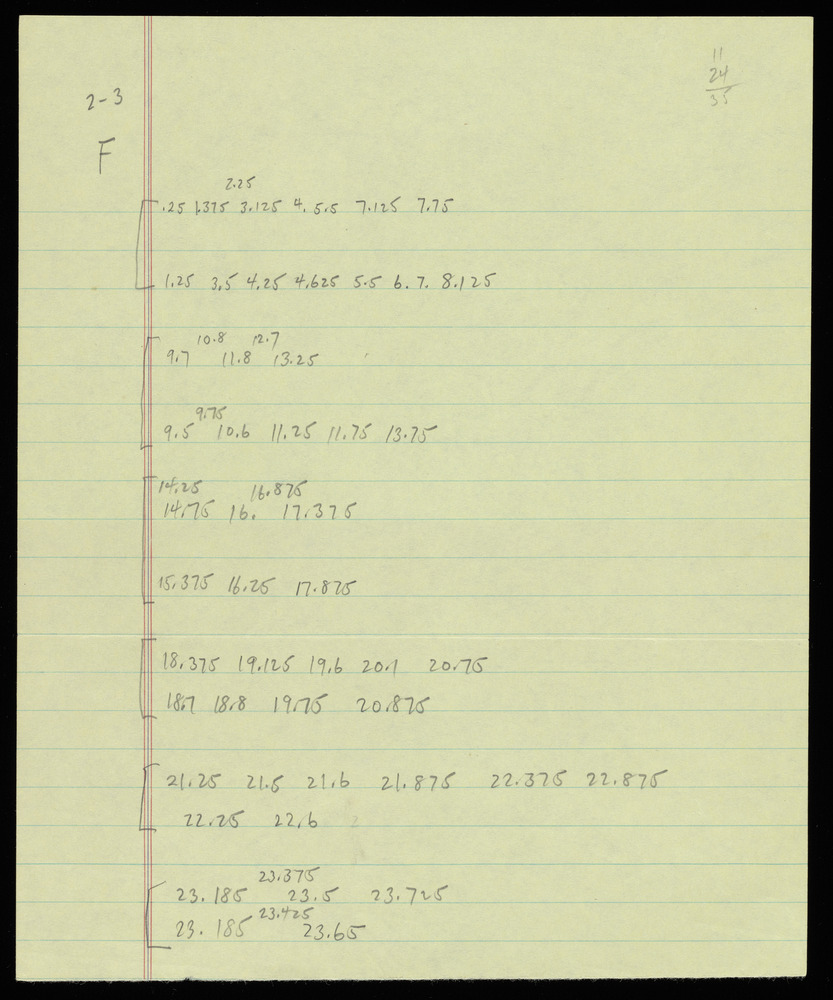 11
24
35
2-3
F
2.25
.25 1.375 3.125 4. 5.5 7.125 7.75
1.25 3.5 4.25 4.625 5.5 6. 7. 8.125
10.8 12.7
9.7 11.8 13.25
9.75
9.5 10.6 11.25 11.75 13.75
14.25 16.875
14.75 16. 17.375
15.375 16.25 17.875
18.375 19.125 19.6 20.1 20.75
18.7 18.8 19.75 20.875
21.25 21.5 21.6 21.875 22.375 22.875
22.25 22.6
23.375
23.185 23.5 23.725
23.425
23.185 23.65